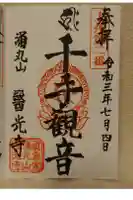 奉拝
令和三年七月四日
千手観音
涌丸山
醫光寺